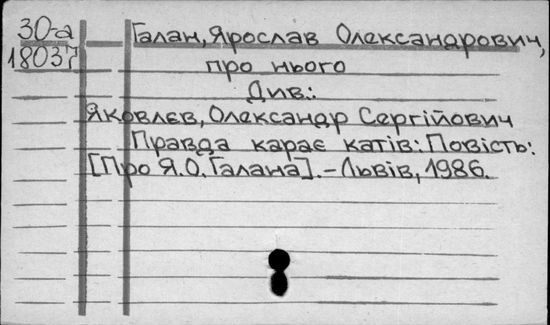 30-а
18037
Галан, Ярослав Олександрович,
про нього
Див.:
Яковлєв, Олександр Сергійович
Правда карає катів: Повість:
[Про Я.О. Галана]. – Львів, 1986.